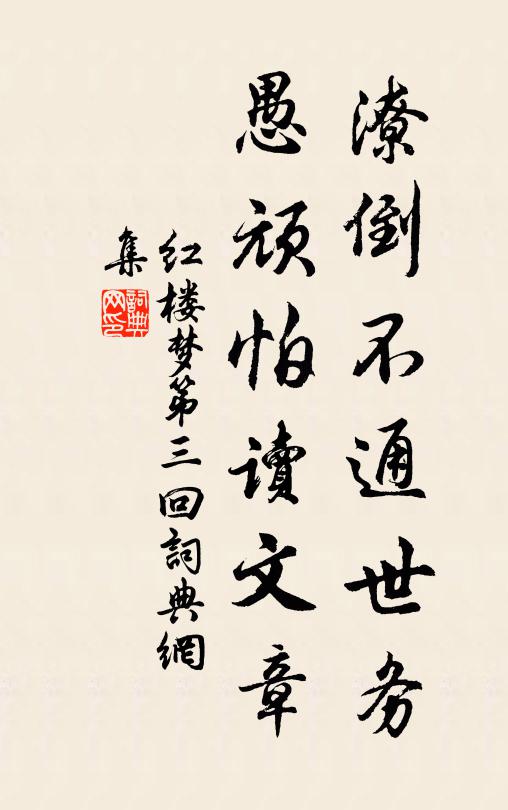 潦倒不通世务
愚顽怕讀文章
红楼梦第三回詞典網
集
詞典
网印